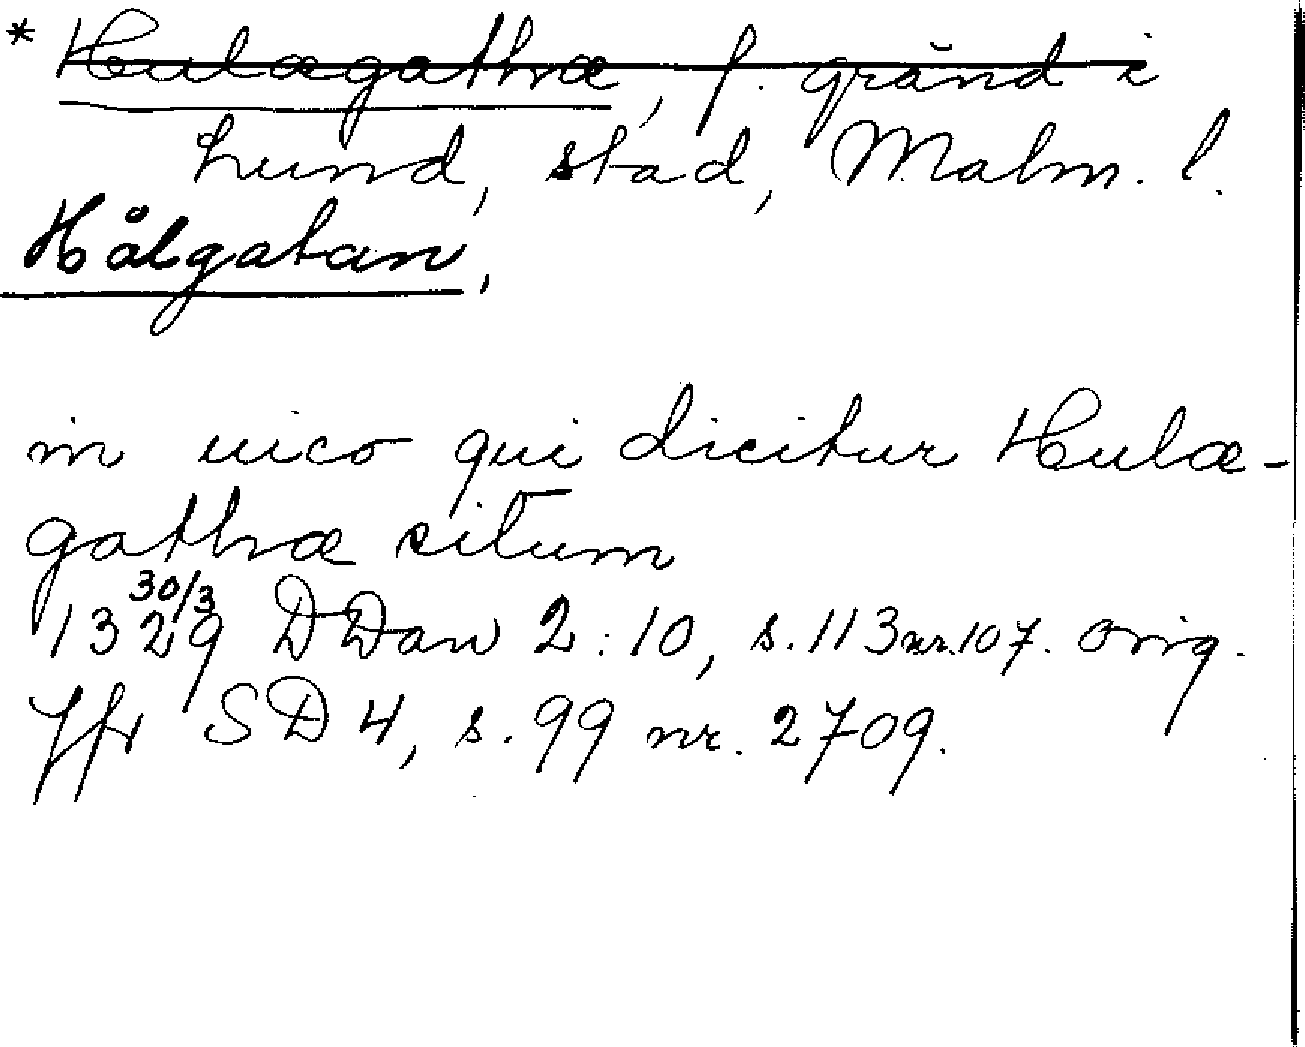 * Hulægathræ, f. gränd i
Lund, stad, Malm. l.
Hålgatan,
in uico qui dicitur Hulæ-
gathræ situm
1329 30/3 DDan 2:10, s. 113 nr. 107. orig.
Jfr SD 4, s. 99 nr. 2709.